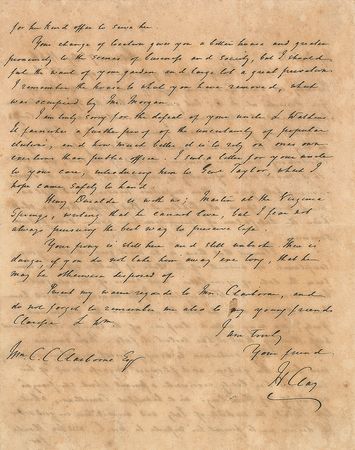 for her kind offer to serve her.
Your change of location gives you a better house and greater
proximity to the scenes of business and society, but I should
feel the want of your garden and large lot a great privation.
I remember the house to which you have removed, which
was occupied by Mr. Morgan.
I am truly sorry for the defeat of your uncle L. Watkins.
It furnishes a further proof of the uncertainty of popular
elections, and how much better it is to rely on ones own
exertions than public office. I sent a letter for your uncle
to your care, introducing him to Genl Taylor, which I
hope came safely to hand.
Henry Duralde is with us; Martin at the Virginia
Springs, writing that he cannot live, but I fear not
always pursuing the best way to preserve life.
Your pony is still here and still unbroke. There is
danger, if you do not take him away ere long, that he
may be otherwise disposed of.
Present my warm regards to Mrs. Claiborne, and
do not forget to remember me also to my young friends
Clarisse & Wm.
I am truly
Your friend
H. Clay
Wm. C. C. Claiborne Esqr